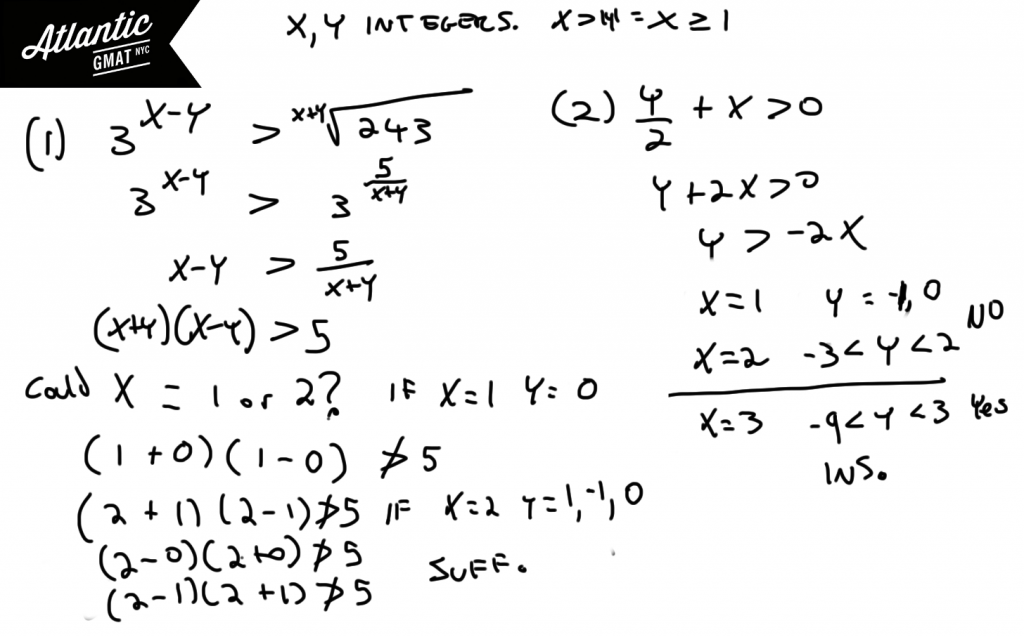 Atlantic
GMAT NYC
X, Y INTEGERS. X > |Y| = X ≥ 1
(1) 3^(X-Y) > ^(X+Y)√243
3^(X-Y) > 3^(5/(X+Y))
X-Y > 5/(X+Y)
(X+Y)(X-Y) > 5
Could X = 1 or 2? IF X=1 Y=0
(1+0)(1-0) ≯ 5
(2+1)(2-1) ≯ 5 IF X=2 Y=1,-1,0
(2-0)(2+0) ≯ 5
(2-1)(2+1) ≯ 5 SUFF.
(2) Y/2 + X > 0
Y+2X > 0
Y > -2X
X=1 Y = 0
X=2 -3<Y<2 NO
X=3 -9<Y<3 Yes
INS.